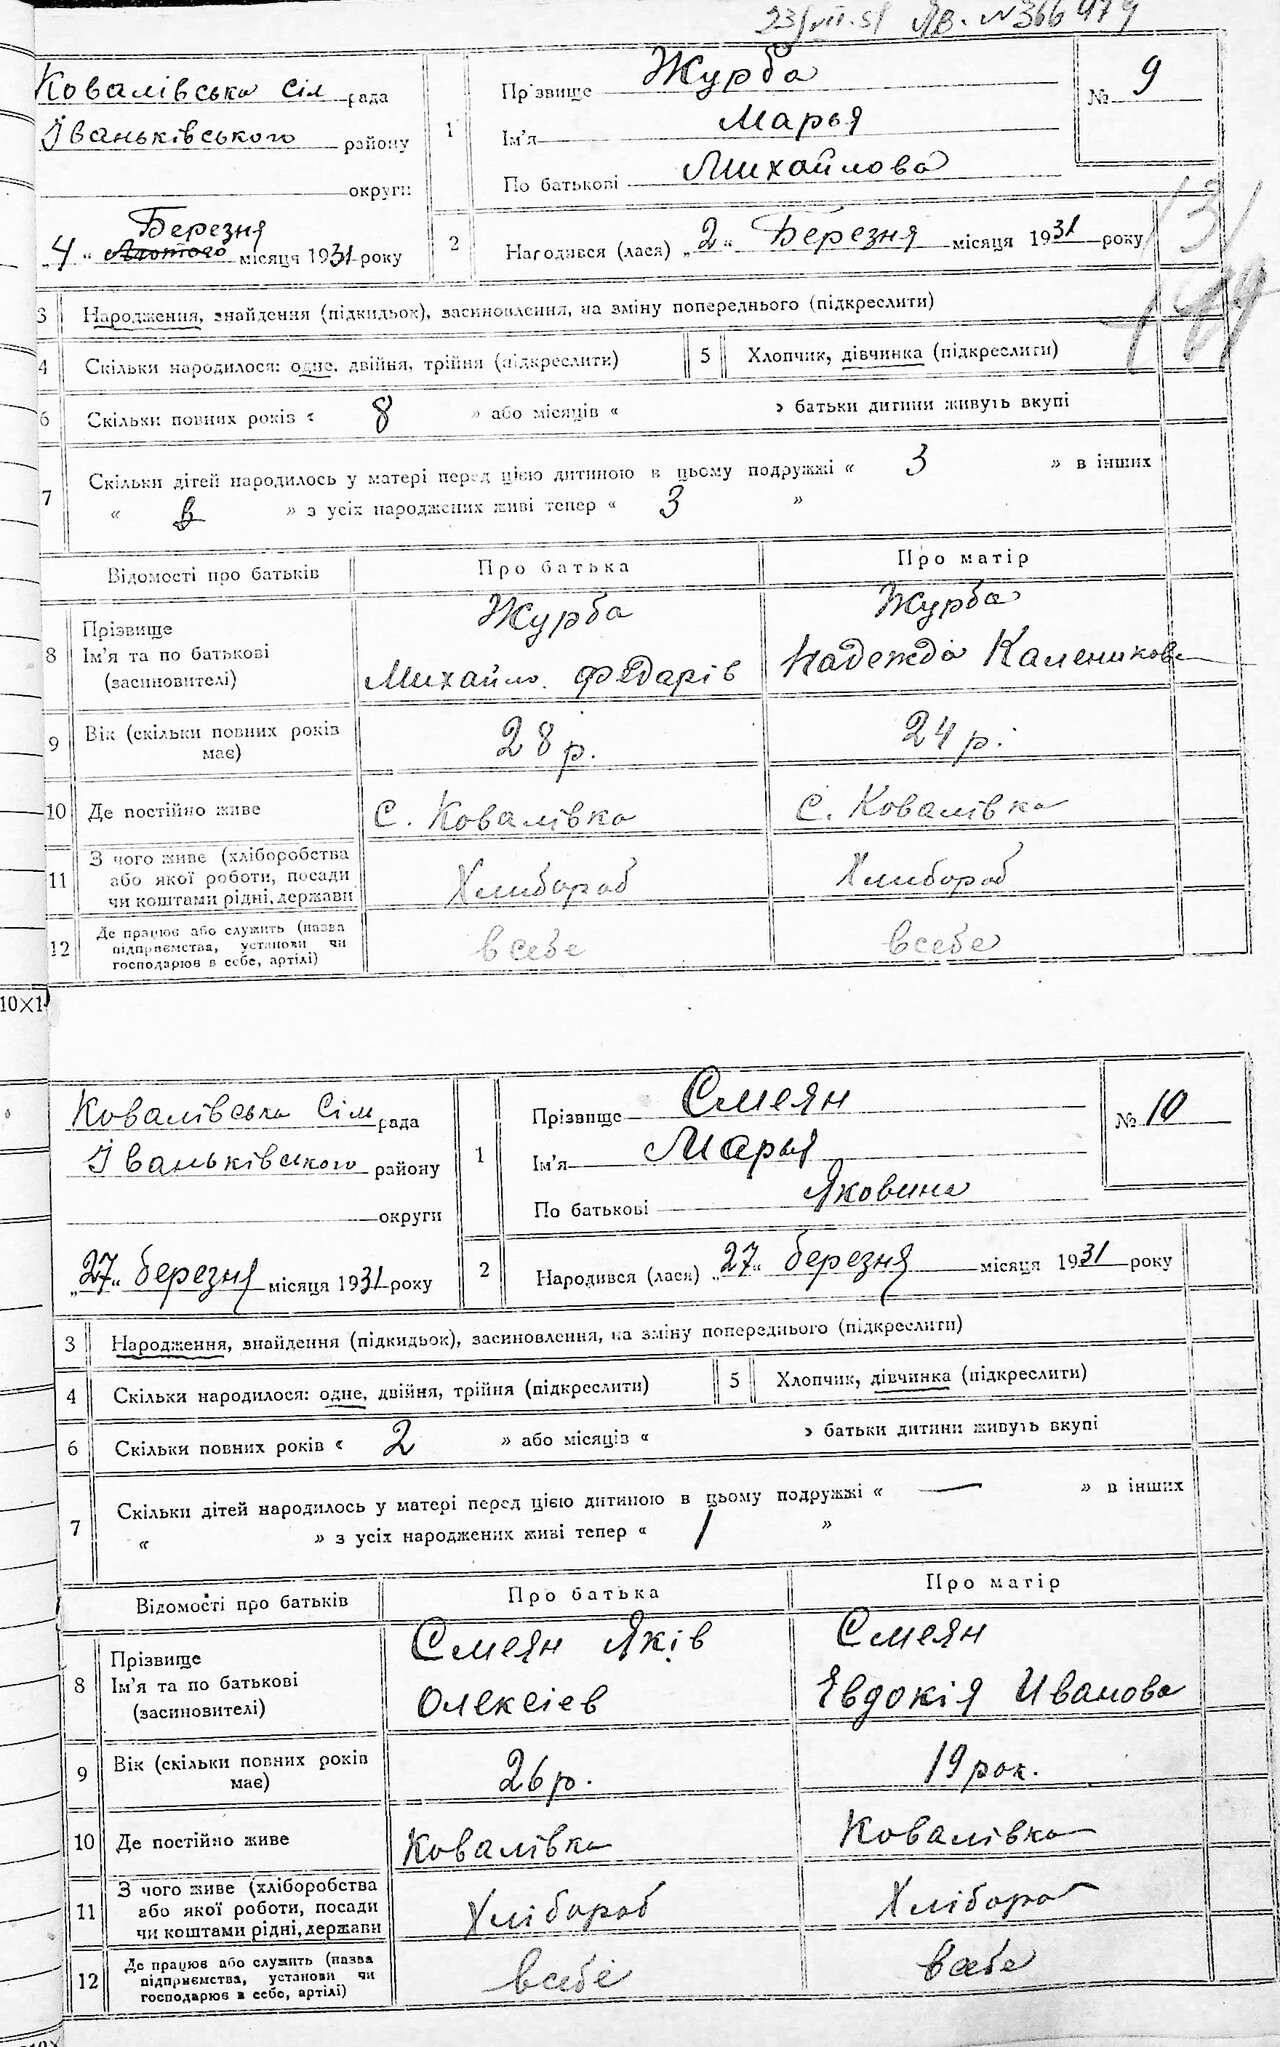 23/VII-51 ЯВ. N 366479
Ковалівська Сіл рада
Іваньківського району
округи
1
Прізвище Журба
Ім'я Марья
По батькові Михайлова
№ 9
„4“ Лютого Березня місяця 1931 року
2
Народився (лася) „2“ Березня місяця 1931 року
3 Народження, знайдення (підкидьок), засиновлення, на зміну попереднього (підкреслити)
4 Скільки народилося: одне, двійня, трійня (підкреслити)
5 Хлопчик, дівчинка (підкреслити)
6 Скільки повних років « 8 » або місяців « » батьки дитини живуть вкупі
7 Скільки дітей народилось у матері перед цією дитиною в цьому подружжі « 3 » в інших
« » з усіх народжених живі тепер « 3 »
Відомості про батьків Про батька Про матір
8 Прізвище
Ім'я та по батькові
(засиновителі)
Журба
Михайло Федарів
Журба
Надежда Каленикова
9 Вік (скільки повних років
має)
28 р. 24 р.
10 Де постійно живе С. Ковалівка С. Ковалівка
11 З чого живе (хліборобства
або якої роботи, посади
чи коштами рідні, держави
Хлибороб Хлибороб
12 Де працює або служить (назва
підприємства, установи чи
господарює в себе, артілі)
в себе в себе
10×1
Ковалівська Сіл рада
Іваньківського району
округи
1
Прізвище Смеян
Ім'я Марья
По батькові Яковина
№ 10
„27“ березня місяця 1931 року
2
Народився (лася) „27“ березня місяця 1931 року
3 Народження, знайдення (підкидьок), засиновлення, на зміну попереднього (підкреслити)
4 Скільки народилося: одне, двійня, трійня (підкреслити)
5 Хлопчик, дівчинка (підкреслити)
6 Скільки повних років « 2 » або місяців « » батьки дитини живуть вкупі
7 Скільки дітей народилось у матері перед цією дитиною в цьому подружжі « — » в інших
« » з усіх народжених живі тепер « 1 »
Відомості про батьків Про батька Про матір
8 Прізвище
Ім'я та по батькові
(засиновителі)
Смеян Яків
Олексіев
Смеян
Евдокія Иванова
9 Вік (скільки повних років
має)
26 р. 19 рок.
10 Де постійно живе Ковалівка Ковалівка
11 З чого живе (хліборобства
або якої роботи, посади
чи коштами рідні, держави
Хлібороб Хлібороб
12 Де працює або служить (назва
підприємства, установи чи
господарює в себе, артілі)
в себе в себе